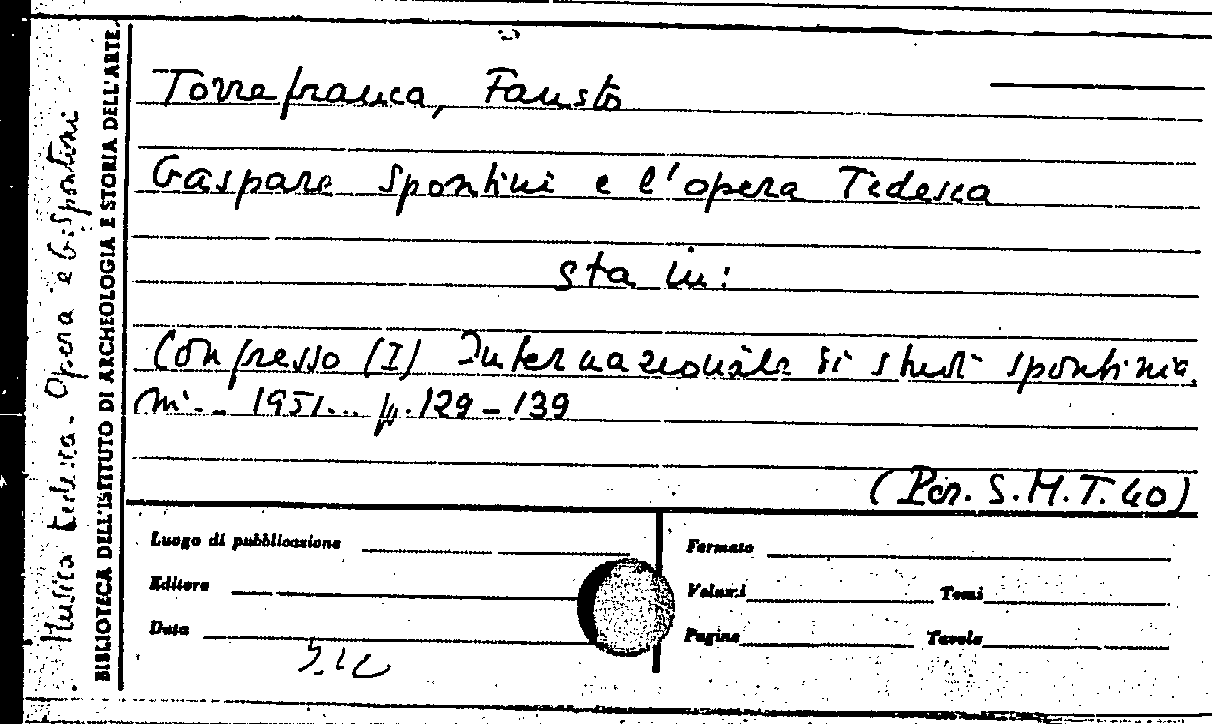 Torrefranca, Fausto
Gaspare Spontini e l'opera Tedesca
sta in:
Congresso (I) Internazionale di studi spontinia
ni... 1951... p. 129-139
(Per. S.M.T. 40)
Luogo di pubblicazione
Formato
Editore
Volumi
Tomi
Data
Pagine
Tavole
BIBLIOTECA DELL'ISTITUTO DI ARCHEOLOGIA E STORIA DELL'ARTE.
Musica tedesca - Opera e G. Spontini